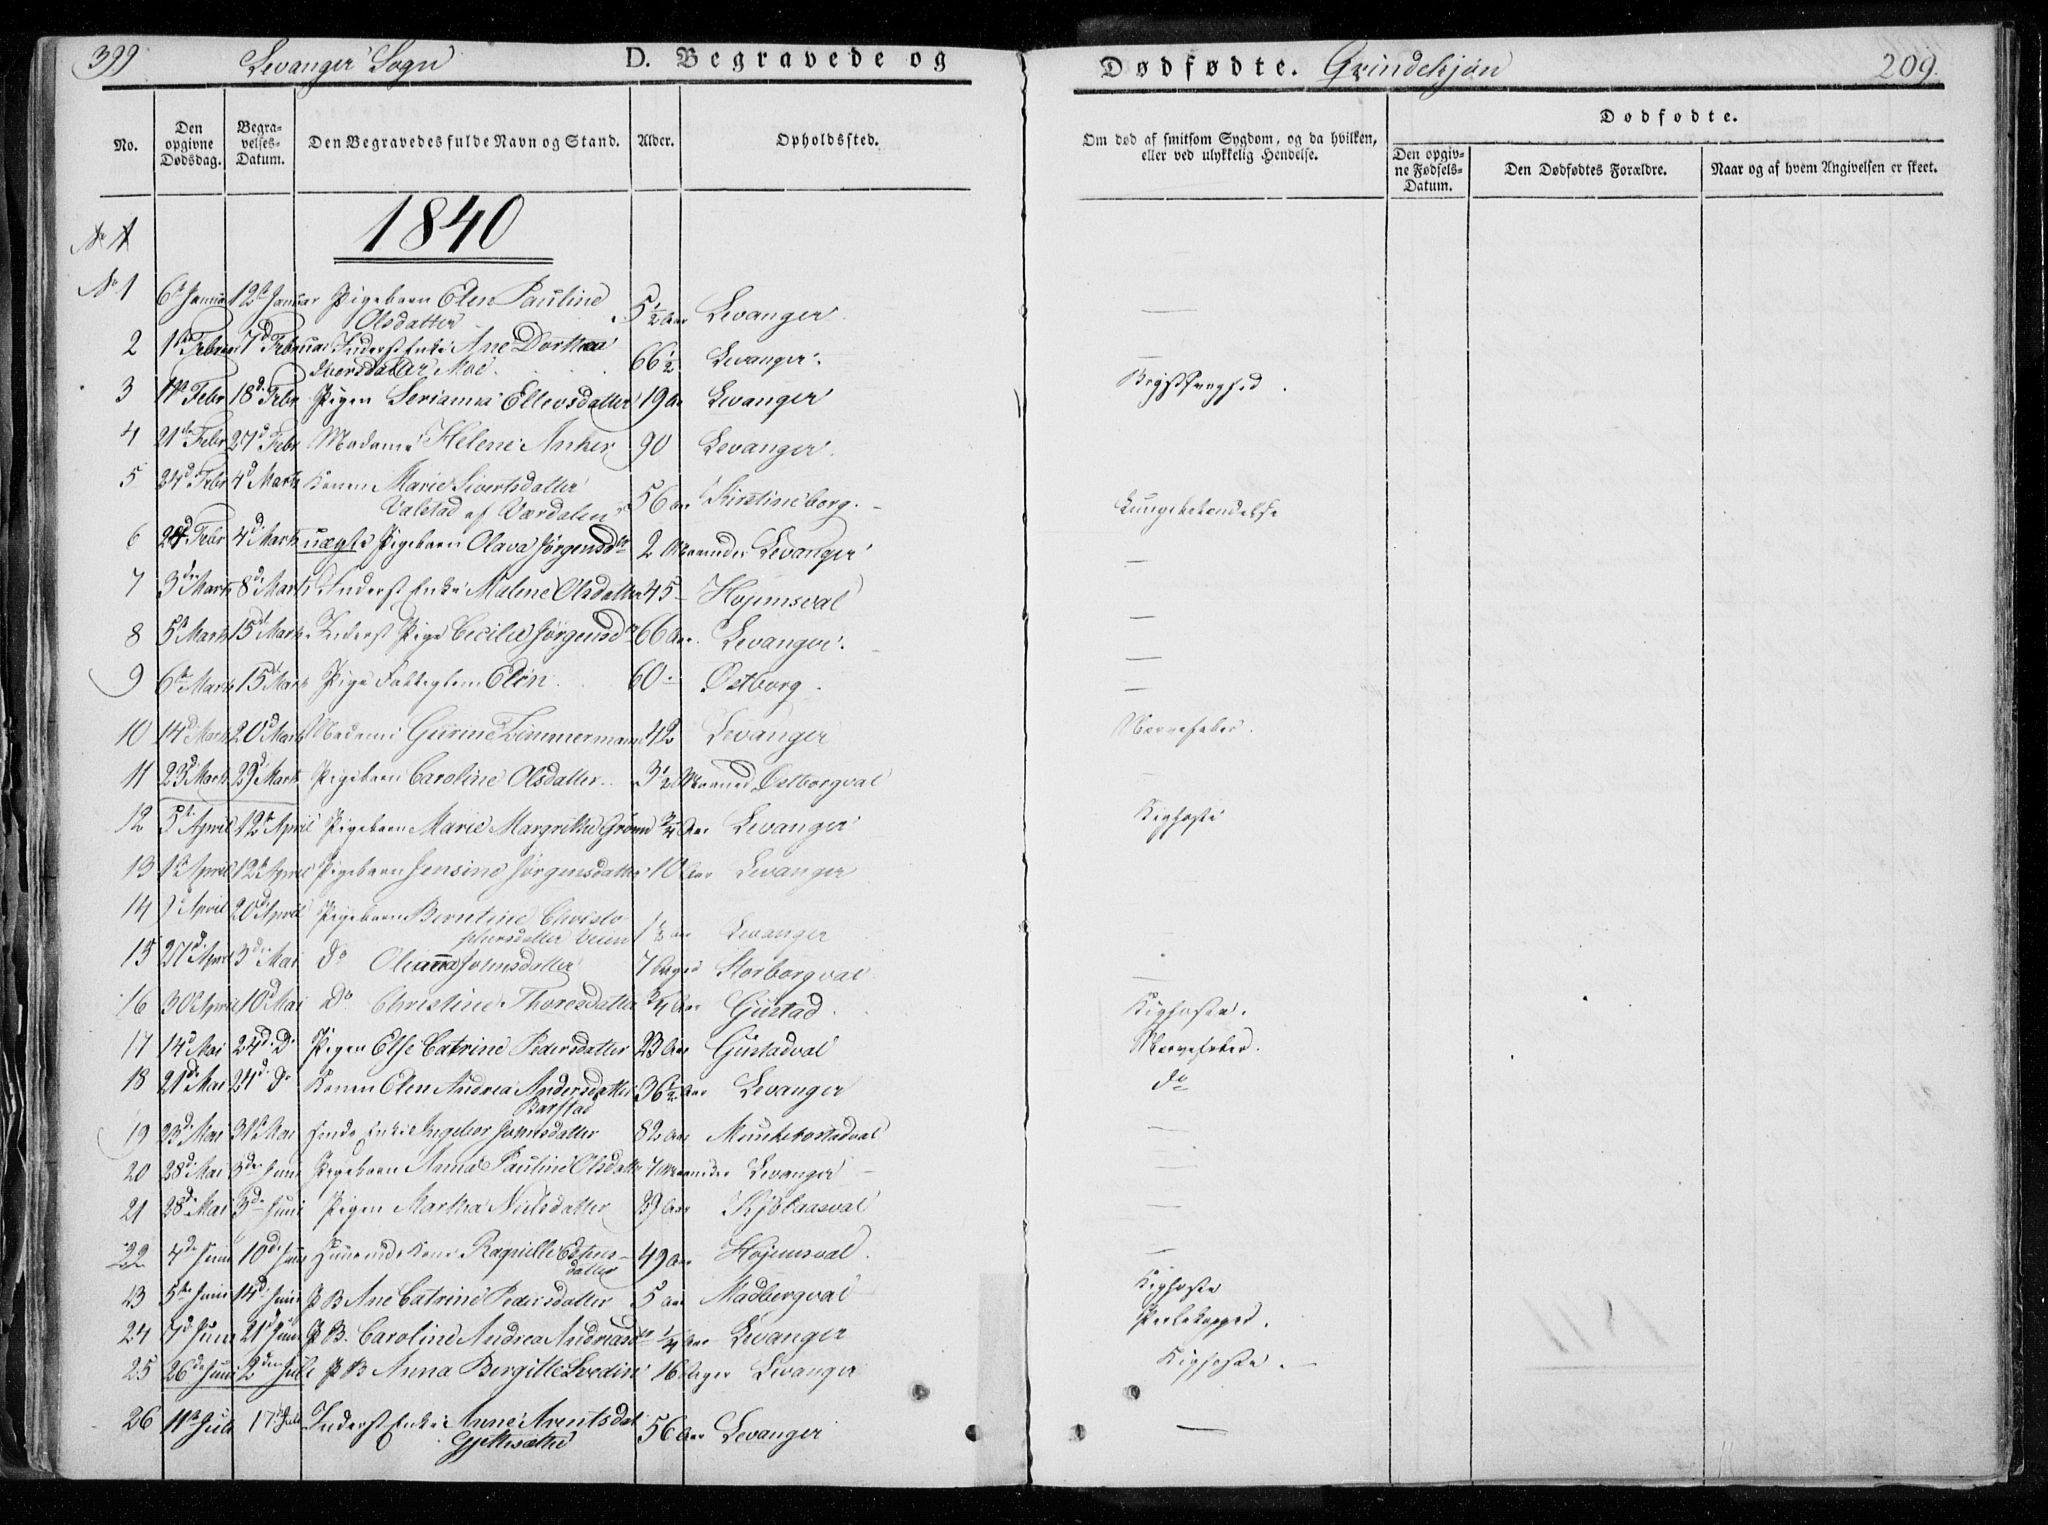 399 Levanger Sogn D. Begravede og Dødfødte. Qvindekjön 209.
No. Den opgivne Dødsdag. Begravelses-Datum. Den Begravedes fulde Navn og Stand. Alder. Opholdssted. Om død af smitsom Sygdom, og da hvilken, eller ved ulykkelig Hendelse. Dødfødte.
Den opgivne Fødsels-Datum. Den Dødfødtes Forældre. Naar og af hvem Angivelsen er skeet.
1840
No 1
No 1 6te Janua 12te Januar Pigebarn Elen Pauline Olsdatter 5 1/2 Aar Levanger —
2 1ste Februar 7d Februar Inderst Enke Ane Dorthea Iversdatter Moe. 66 1/2 Levanger. —
3 11te Febr 18d Febr Pigen Serianna Ellevsdatter 19 Aar Levanger Brystsvaghed.
4 21de Febr 27d Febr Madame Helene Anker 90 Levanger.
5 24d Febr 4d Marts Konen Marie Sivertsdatter Valstad af Værdalen 56 Aar Kirstineborg. Lungebetændelse
6 24d Febr 4d Marts uægte Pigebarn Olava Jørgensdr 2 Maaneder Levanger —
7 3die Marts 8d Marts Inderst Enke Malene Olsdatter 45 Hojemsval —
8 5te Marts 15d Marts Inderst Pige Cecilie Jørgensdr 66 Aar. Levanger. —
9 6te Marts 15d Marts Pige Fattiglem Elen. 60 Østborg. —
10 14d Marts 20d Marts Madame Gurine Zimmermann 42 Levanger Nervefeber.
11 23d Marts 29d Marts Pigebarn Caroline Olsdatter. 3 1/2 Maaned Østborgval —
12 5te April 12te April Pigebarn Marie Margrethe Grønn 3/4 Aar Levanger Kighoste
13 1ste April 12te April Pigebarn Jensine Jørgensdatter 10 Aar Levanger —
14 April 20d April Pigebarn Berntine Christophersdatter Veien 1 1/2 Aar Levanger —
15 27d April 3die Mai do Oleanna Johnsdatter 7 Dage Storborgval —
16 30te April 10d Mai Do Christine Thoresdatter 3/4 Aar Gjustad. Kighoste.
17 14d Mai 24d Do Pigen Else Catrine Pedersdatter 23 Aar Gjustadval Nervefeber.
18 21de Mai 24d do Konen Elen Andrea Andersdatter Barstad 36 1/2 Aar Levanger do
19 23de Mai 31te Mai Enke Ingebor Johnsdatter 82 Aar Munkerostadval —
20 28d Mai 3die Juni Pigebarn Anna Pauline Olsdatter 7 Maaneder Levanger —
21 28de Mai 3die Juni Pigen Martha Nielsdatter 39 Aar Kjölaasval —
22 4de Juni 10d Juni Huusmands Kone Ragnille Estensdatter 49 Aar Hojemsval. —
23 5te Juni 14d Juni P B Ane Catrine Pedersdatter 5 Aar Madbergval Kighoste
24 7d Juni 21d Juni P B. Caroline Andrea Andreasdr 1/4 Aar Levanger
25 26de Juni 2den Juli P B Anna Bergitte Svedin 16 Uger Levanger Kighoste.
26 11te Juli 17d Juli Inderst Enke Anne Arentsdat 56 Aar Levanger —